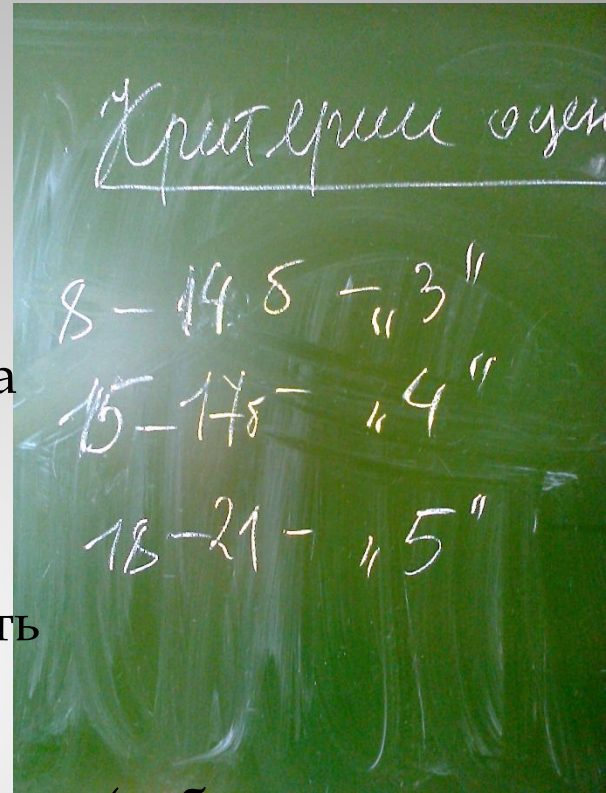 Критерии оцен
8 – 14 б – „3"
а
15 – 17б – „4"
18 – 21 – „5"
ть